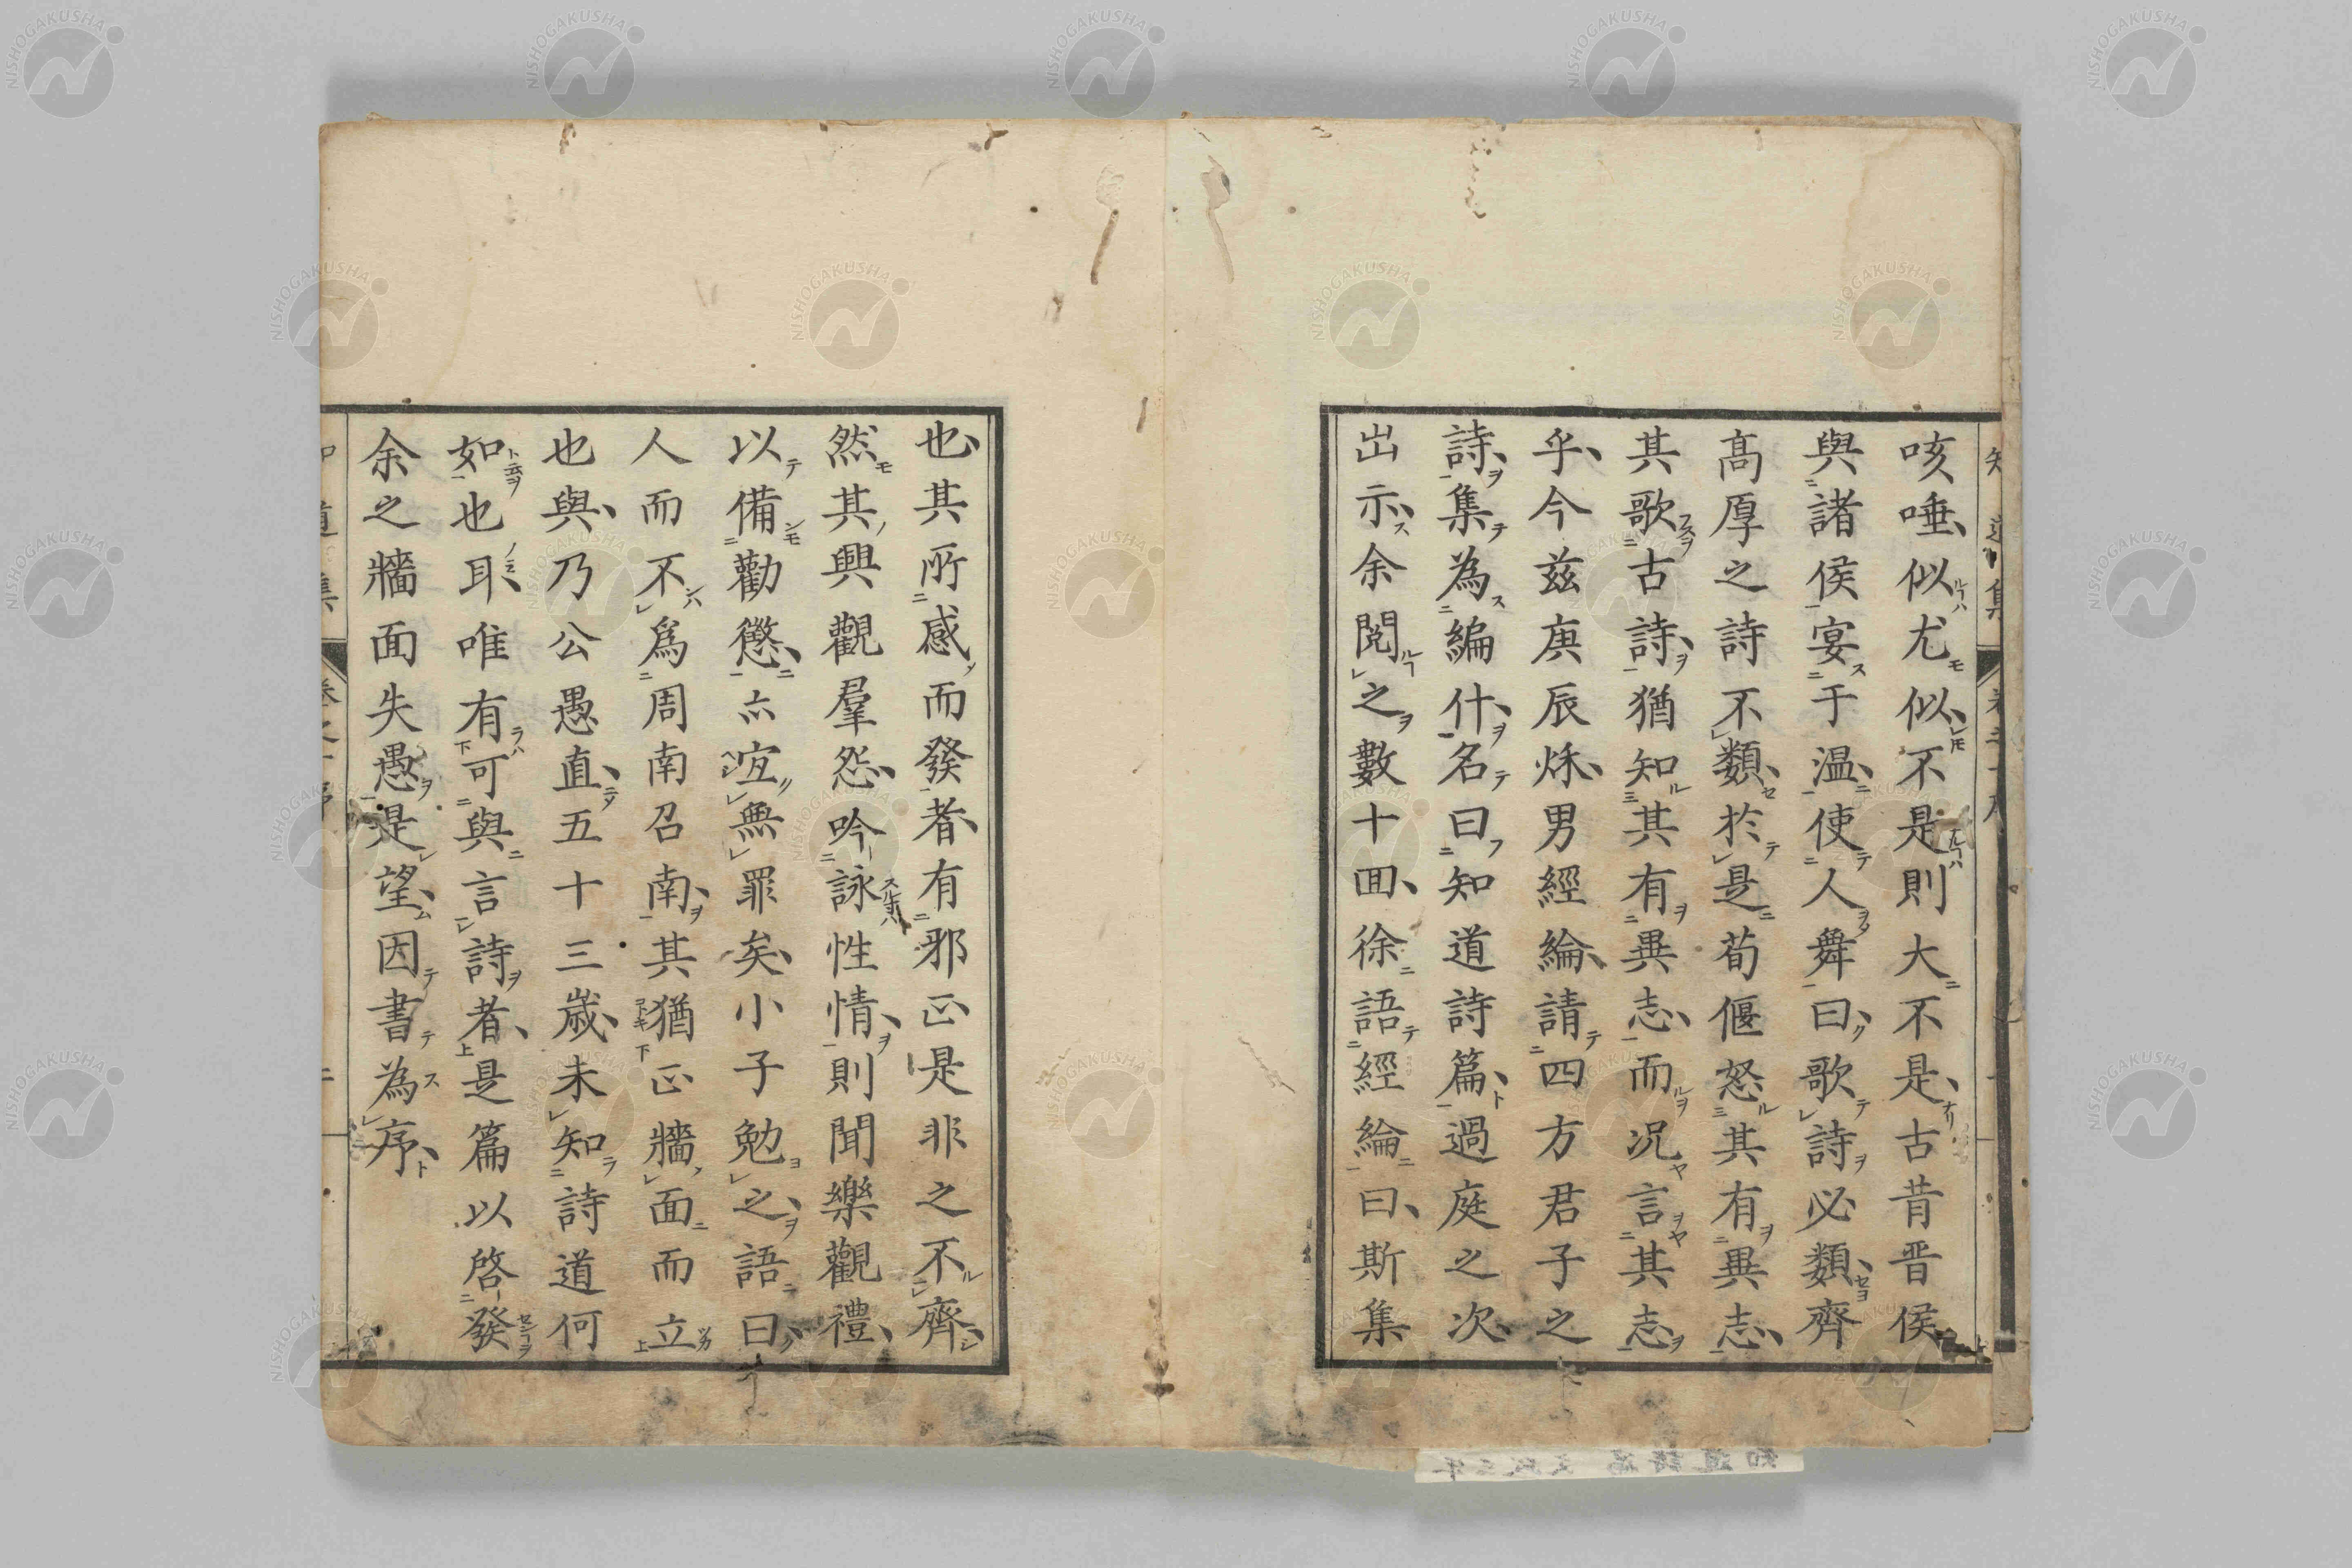 咳唾似尤似不是則大不是古昔晋侯
與諸侯宴于温使人舞曰歌詩必類齊
髙厚之詩不類於是荀偃怒其有異志
其歌古詩猶知其有異志而况言其志
乎今茲庚辰烁男經綸請四方君子之
詩集為編什名曰知道詩篇過庭之次
出示余閲之數十回徐語經綸曰斯集
也其所感而發者有邪正是非之不齊
然其興觀羣怨吟詠性情則聞樂觀禮
以備勸懲亦宜無罪矣小子勉之語曰
人而不爲周南召南其猶正牆面而立
也與乃公愚直五十三歳未知詩道何
如也耳唯有可與言詩者是篇以啓發
余之牆面失愚是望因書為序
NISHOGAKUSHA